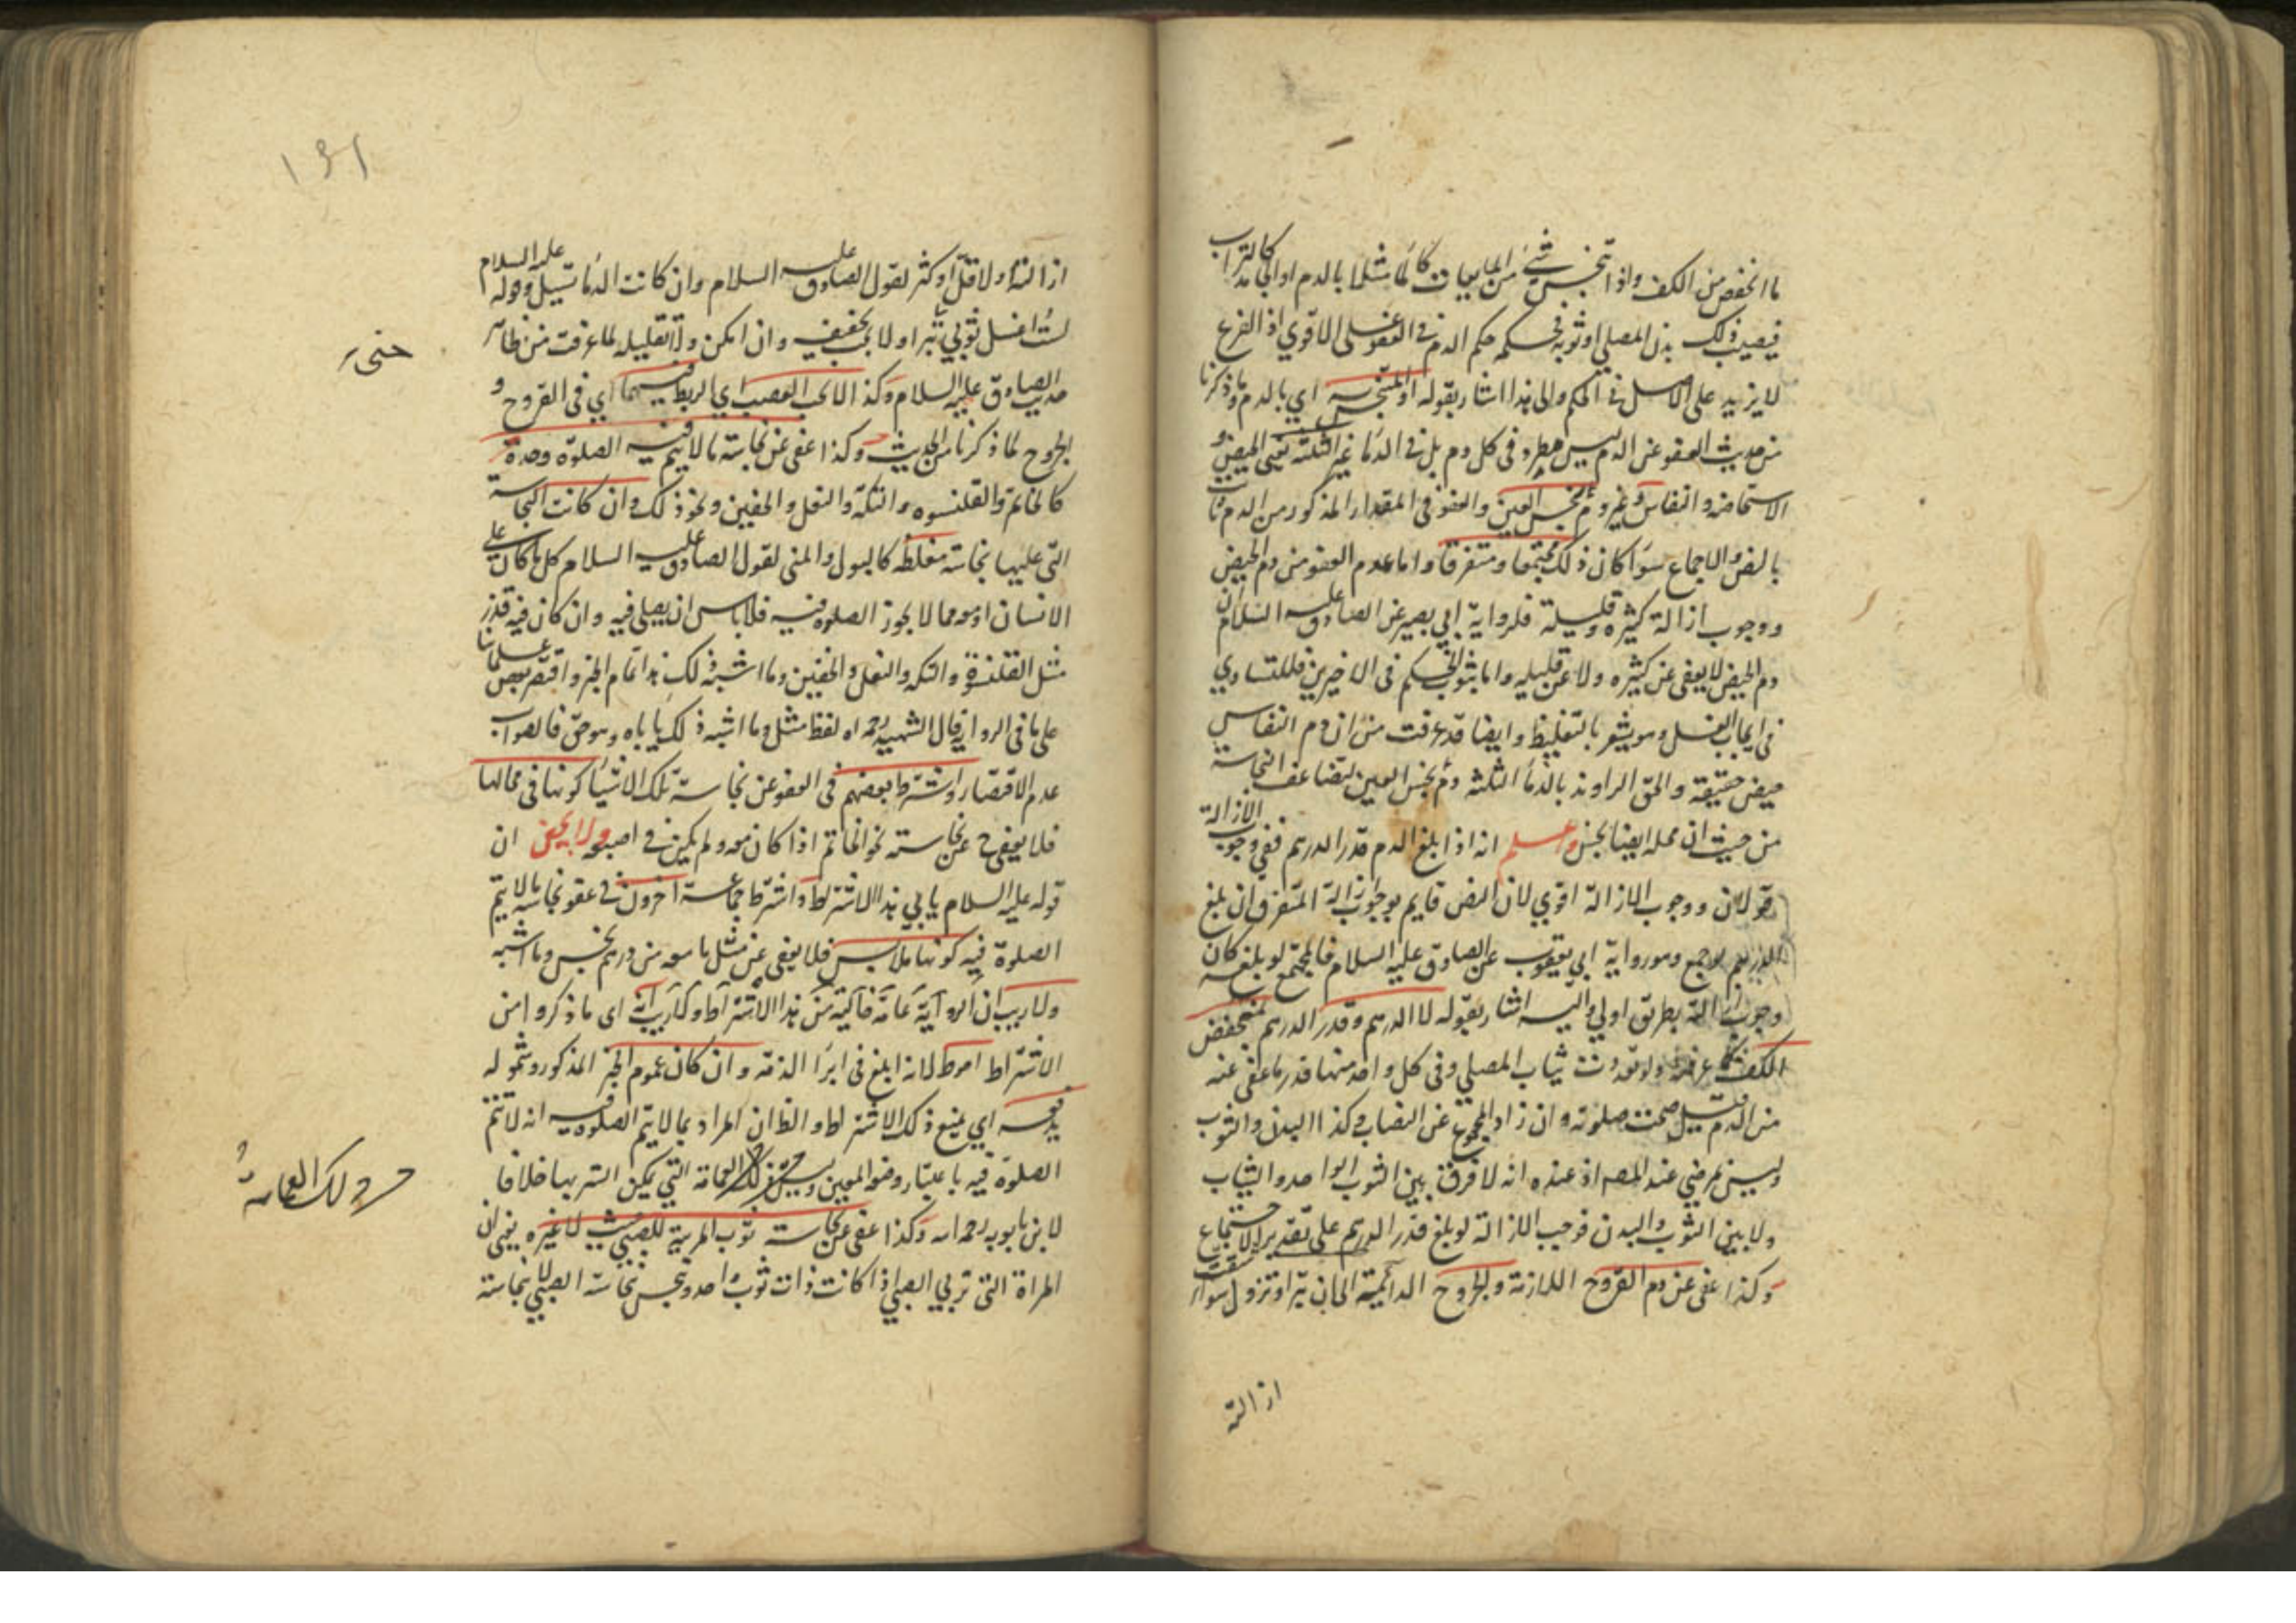 ما انخفض من الكف واذا تنجس شئ من المايعات كالماء مثلا بالدم او الجامد كالتراب
فيصيب ذلك بدن المصلي او ثوبه فحكمه حكم الدم في العفو على الاقوي اذ الفرع
لا يزيد على الاصل في الحكم والى هذا اشار بقوله او المتنجس به اي بالدم وما ذكرنا
من حديث العفو عن الدم ليس بمطرد في كل دم بل في الدماء غير الثلثة يعني الحيض و
الاستحاضة والنفاس وغير دم نجس العين والعفو في المقدار المذكور من الدم ثابت
بالنص والاجماع سواء كان ذلك مجتمعا او متفرقا واما عدم العفو من دم الحيض
ووجوب ازالة كثيره وقليله فلرواية ابي بصير عن الصادق عليه السلام ان
دم الحيض لا يعفى عن كثيره ولا عن قليله واما ثبوت الحكم في الاخيرين فللتساوي
في ايجاب الغسل وهو يشعر بالتغليظ وايضا قد عرفت من ان دم النفاس
حيض حقيقة والحق الراوندي بالدماء الثلثة دم نجس العين لتضاعف النجاسة
من حيث ان محله ايضا نجس واعلم انه اذا بلغ الدم قدر الدرهم ففي وجوب الازالة
قولان ووجوب الازالة اقوي لان النص قايم بوجوب ازالة المتفرق ان بلغ
الدرهم لو جمع وهو رواية ابي يعقوب عن الصادق عليه السلام فالمجتمع لو بلغه كان
وجوب ازالته بطريق اولي واليه اشار بقوله لا الدرهم وقدر الدرهم لمنخفض
الكف كما عرفته ولو تعددت ثياب المصلي وفي كل واحد منها قدر ما عفى عنه
من الدم قيل صحت صلوته وان زاد المجموع عن النصاب وكذا البدن والثوب
وليس بمرضي عند المصـ اذ عنده انه لا فرق بين الثوب الواحد والثياب
ولا بين الثوب والبدن فوجب الازالة لو بلغ قدر الدرهم على تقدير الاجتماع
وكذا عفى عن دم القروح اللازمة والجروح الدائمية الى ان تبرا وتزول سواء شقت
ازالته
١٩١
ازالته او لا قل او كثر لقول الصادق عليه السلام وان كانت الدماء تسيل وقوله عليه السلام
لست اغسل ثوبي حتى تبرا ولا يجب تخفيفه وان امكن ولا تقليله لما عرفت من ظاهر
حتى
حديث الصادق عليه السلام وكذا لا يجب العصب اي الربط فيهما اي في القروح و
الجروح لما ذكرنا من الحديث وكذا عفى عن نجاسة ما لا يتم فيه الصلوة وحده
كالخاتم والقلنسوه والتكة والنعل والخفين ونحو ذلك وان كانت النجاسة
التي عليها نجاسة مغلظه كالبول والمني لقول الصادق عليه السلام كل ما كان على
الانسان او معه مما لا يجوز الصلوة فيه فلا باس ان يصلى فيه وان كان فيه قذر
مثل القلنسوة والتكه والنعل والخفين وما اشبه ذلك هذا تمام الخبر واقتصر بعض علمائنا
على ما في الرواية قال الشهيد رحمه الله ولفظ مثل وما اشبه ذلك ياباه وهو حق فالصواب
عدم الاقتصار واشترط بعضهم في العفو عن نجاسة تلك الاشياء كونها في محالها
فلا يعفى ح عن نجاسة نحو الخاتم اذا كان معه ولم يكن في اصبعه ولا يخفى ان
قوله عليه السلام يابي هذا الاشتراط واشترط جماعة اخرون في عفو نجاسة ما لا يتم
الصلوة فيه كونها ملابس فلا يعفى عن مثل ما معه من درهم نجس وما اشبه
ولا ريب ان الرواية عامة خالية من هذا الاشتراط ولا ريب انه اى ما ذكروا من
الاشتراط احوط لانه ابلغ في ابراء الذمة وان كان عموم الخبر المذكور وشموله
يدفعه اي يمنع ذلك الاشتراط والظ ان المراد بما لا يتم الصلوة فيه انه لا تتم
الصلوة فيه باعتبار وضعه المعين وليس كذلك العمامة التي يمكن الستر بها خلافا
وكذلك العمامة
لابن بابويه رحمه الله وكذا عفى عن نجاسة ثوب المربية للصبي لا غيره يعني ان
المراة التى تربي الصبي اذا كانت ذات ثوب واحد وتنجس نجاسة الصبي لا بنجاسة